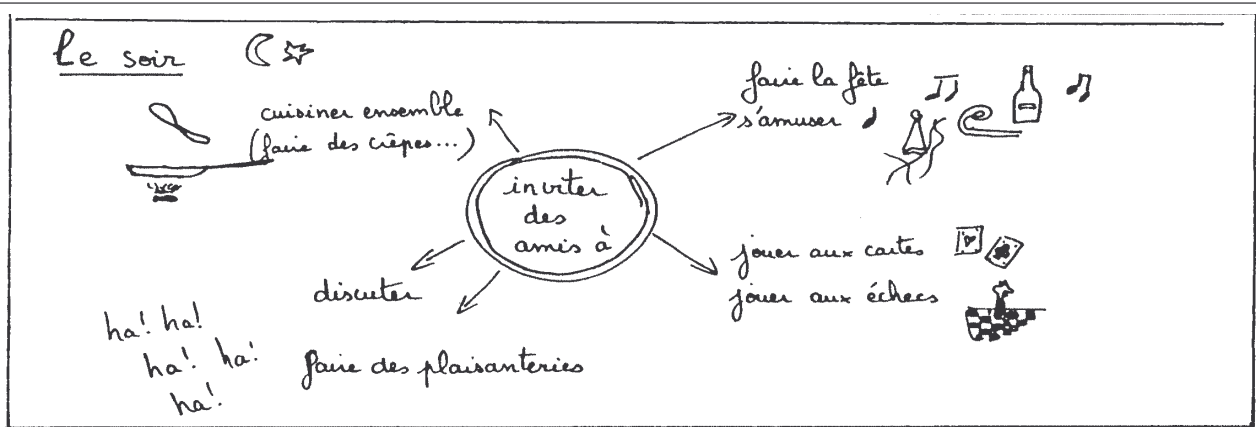 Le soir
cuisiner ensemble
(faire des crêpes...)
faire la fête
s'amuser
inviter
des
amis à
jouer aux cartes
jouer aux échecs
discuter
faire des plaisanteries
ha! ha!
ha! ha!
ha!